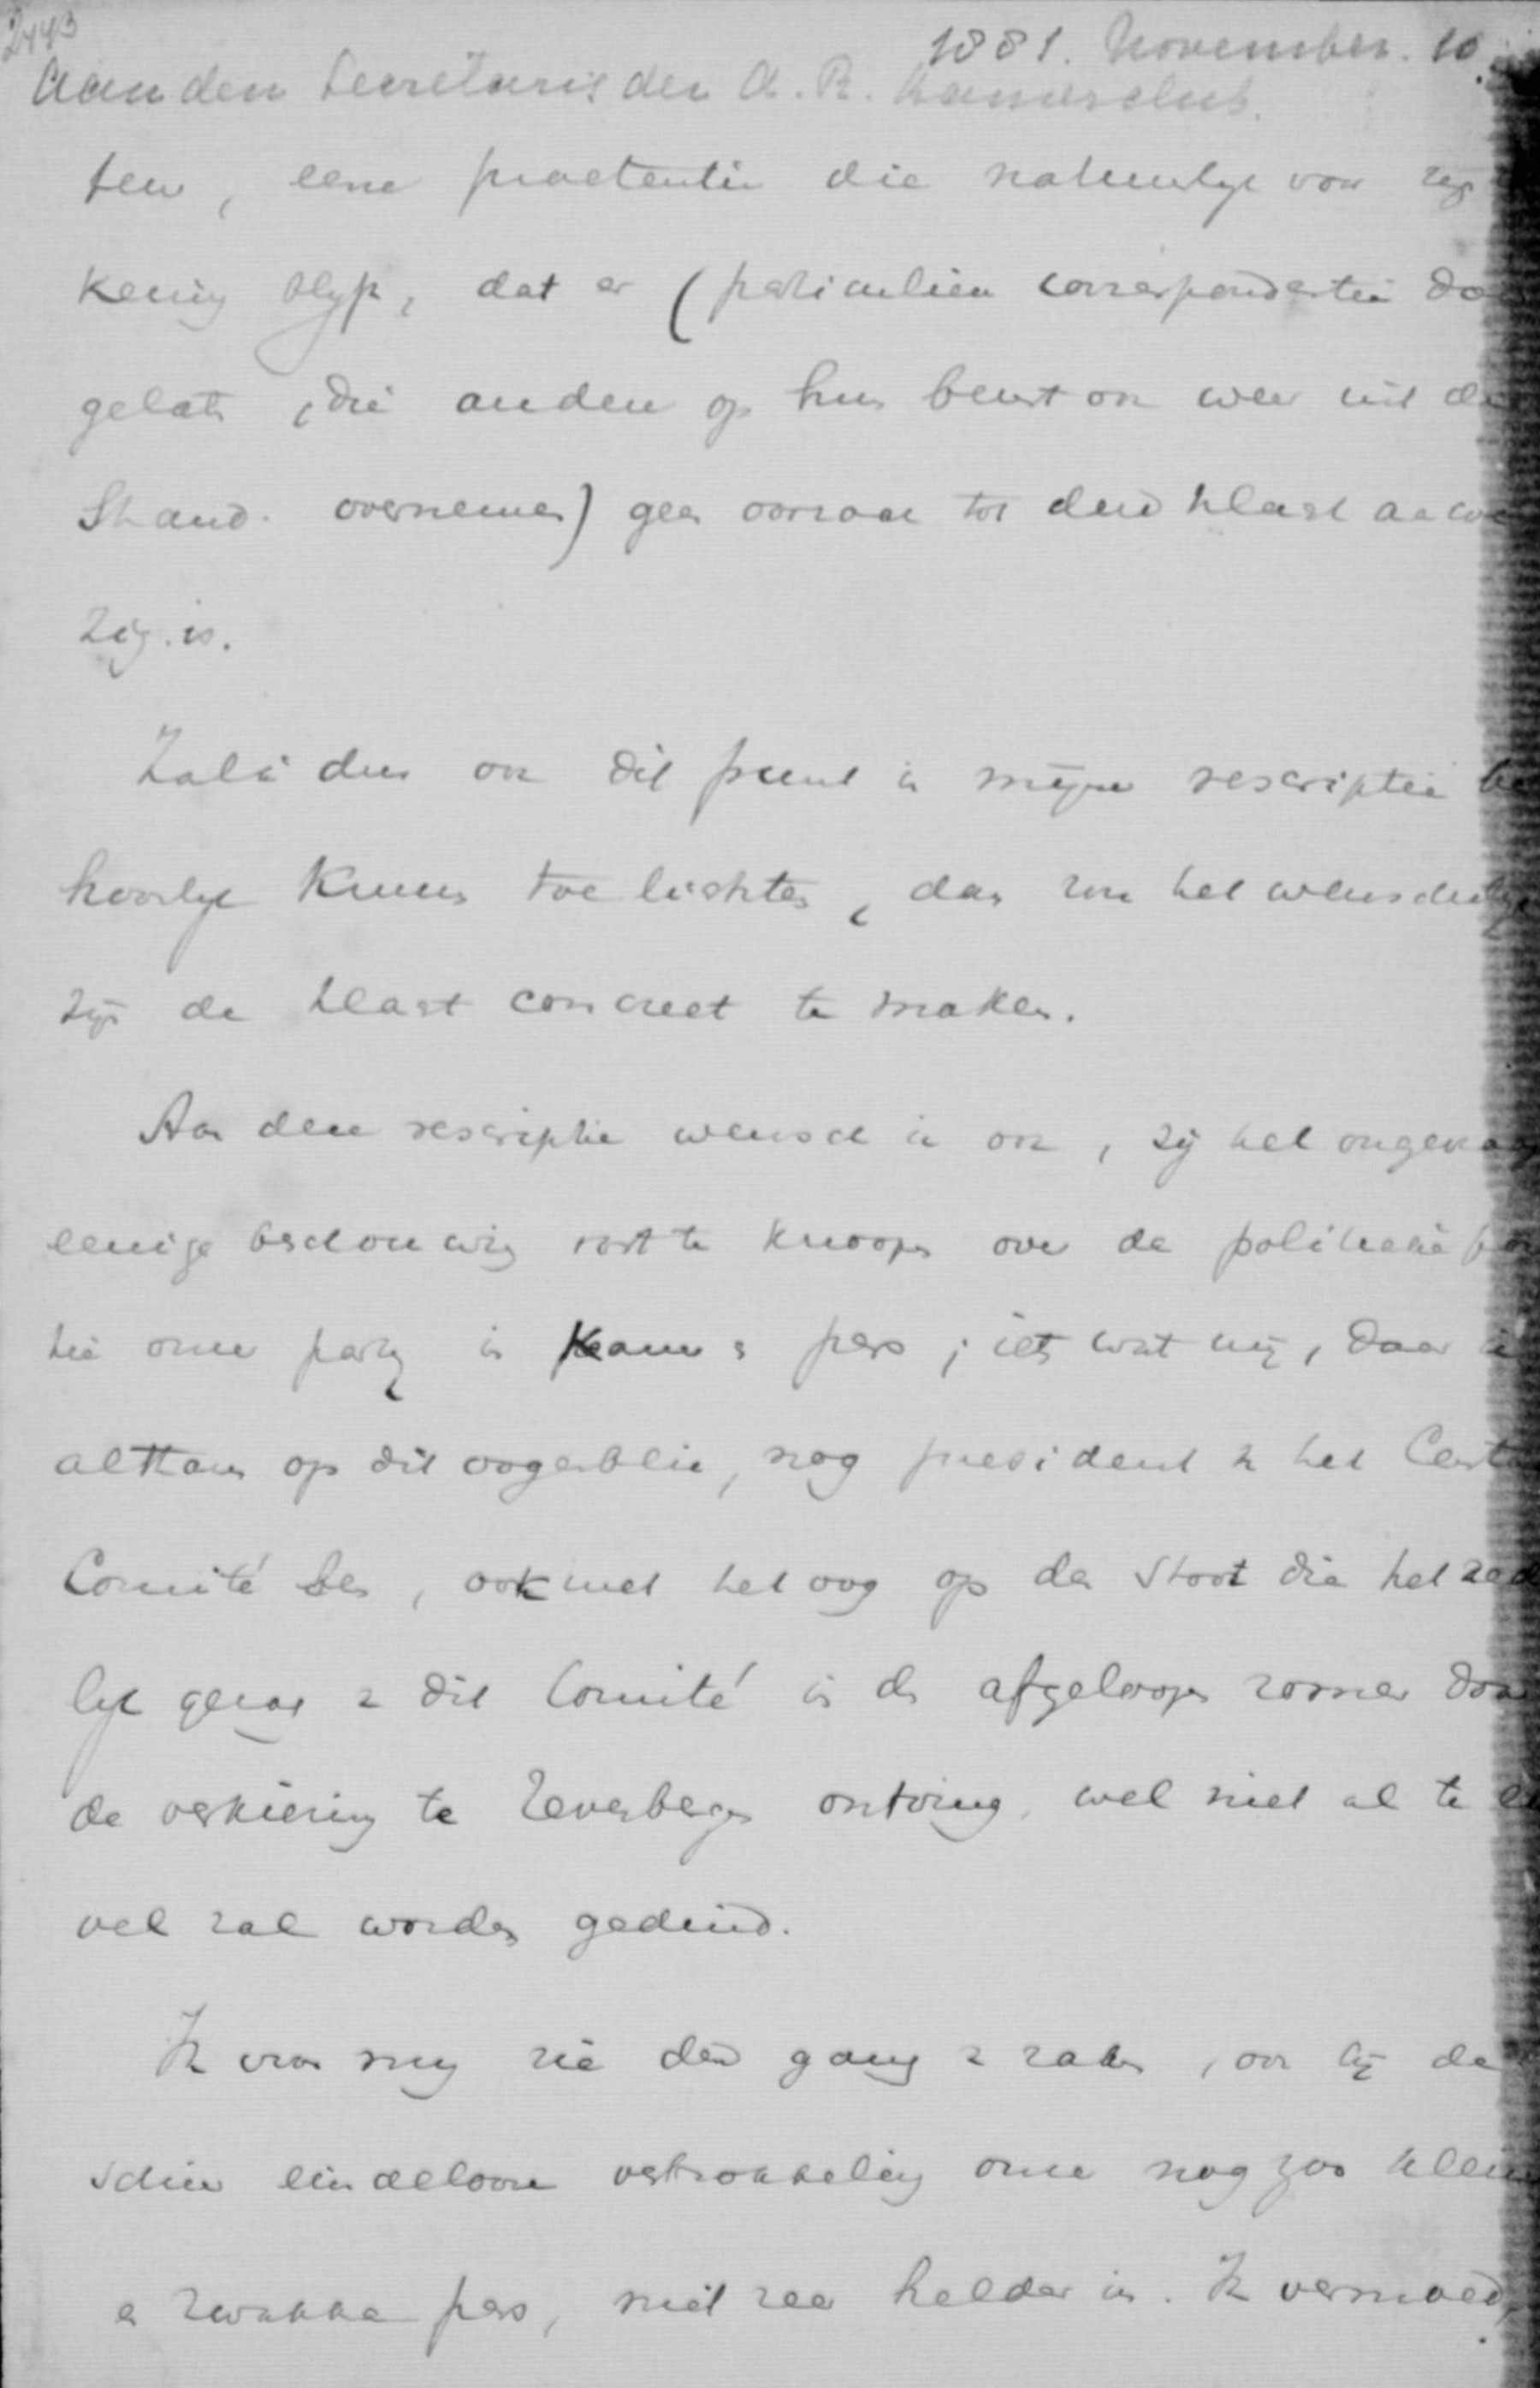 2443
1881. November. 10.
Aan den Secretaris der A. R. Kamerclub.
ten, eene praetentie die natuurlyk voor
kening blyft, dat er (particuliere correspondentie
gelaten, die anderen op hun beurt ook weer uit de
Stand. overnemen) geen oorzaak tot deze klacht aanwe
zig is.
Zal ik dus ook dit punt in mijne rescriptie be
hoorlyk kunnen toe lichten, dan zou het wenschelyk
zijn de klacht concreet te maken.
Aan deze rescriptie wensch ik ook, zij het ongevraagd
eenige beschouwing vast te knoopen over de politieke
tie onzer party in Kamer en pers; iets wat mij, daar ik
althans op dit oogenblik, nog president v. het Centr
Comité ben, ook met het oog op den stoot die het zede
lyk gezag v. dit Comité in den afgeloopen zomer door
de verkiezing te Zevenbergen ontving, wel niet al te eu
vel zal worden geduid.
Ik voor mij zie den gang v. zaken, ook bij de
schier eindelooze verbrokkeling onzer nog zoo kleine
en zwakke pers, niet zeer helder in. Ik vermoed,